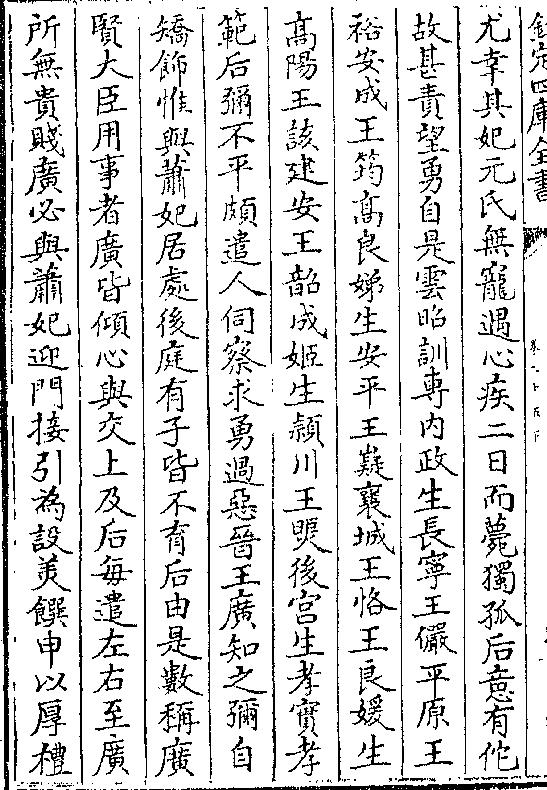 欽定四庫全書
尤幸其妃元氏無寵遇心疾二日而薨獨孤后意有佗
故甚責望勇自是雲昭訓専内政生長寧王儼平原王
裕安成王筠髙良娣生安平王嶷襄城王恪王良媛生
髙陽王該建安王韶成姬生潁川王煚後宮生孝實孝
範后彌不平頗遣人伺察求勇過惡晉王廣知之彌自
矯飾惟與蕭妃居處後庭有子皆不育后由是數稱廣
賢大臣用事者廣皆傾心與交上及后每遣左右至廣
所無貴賤廣必與蕭妃迎門接引為設美饌申以厚禮